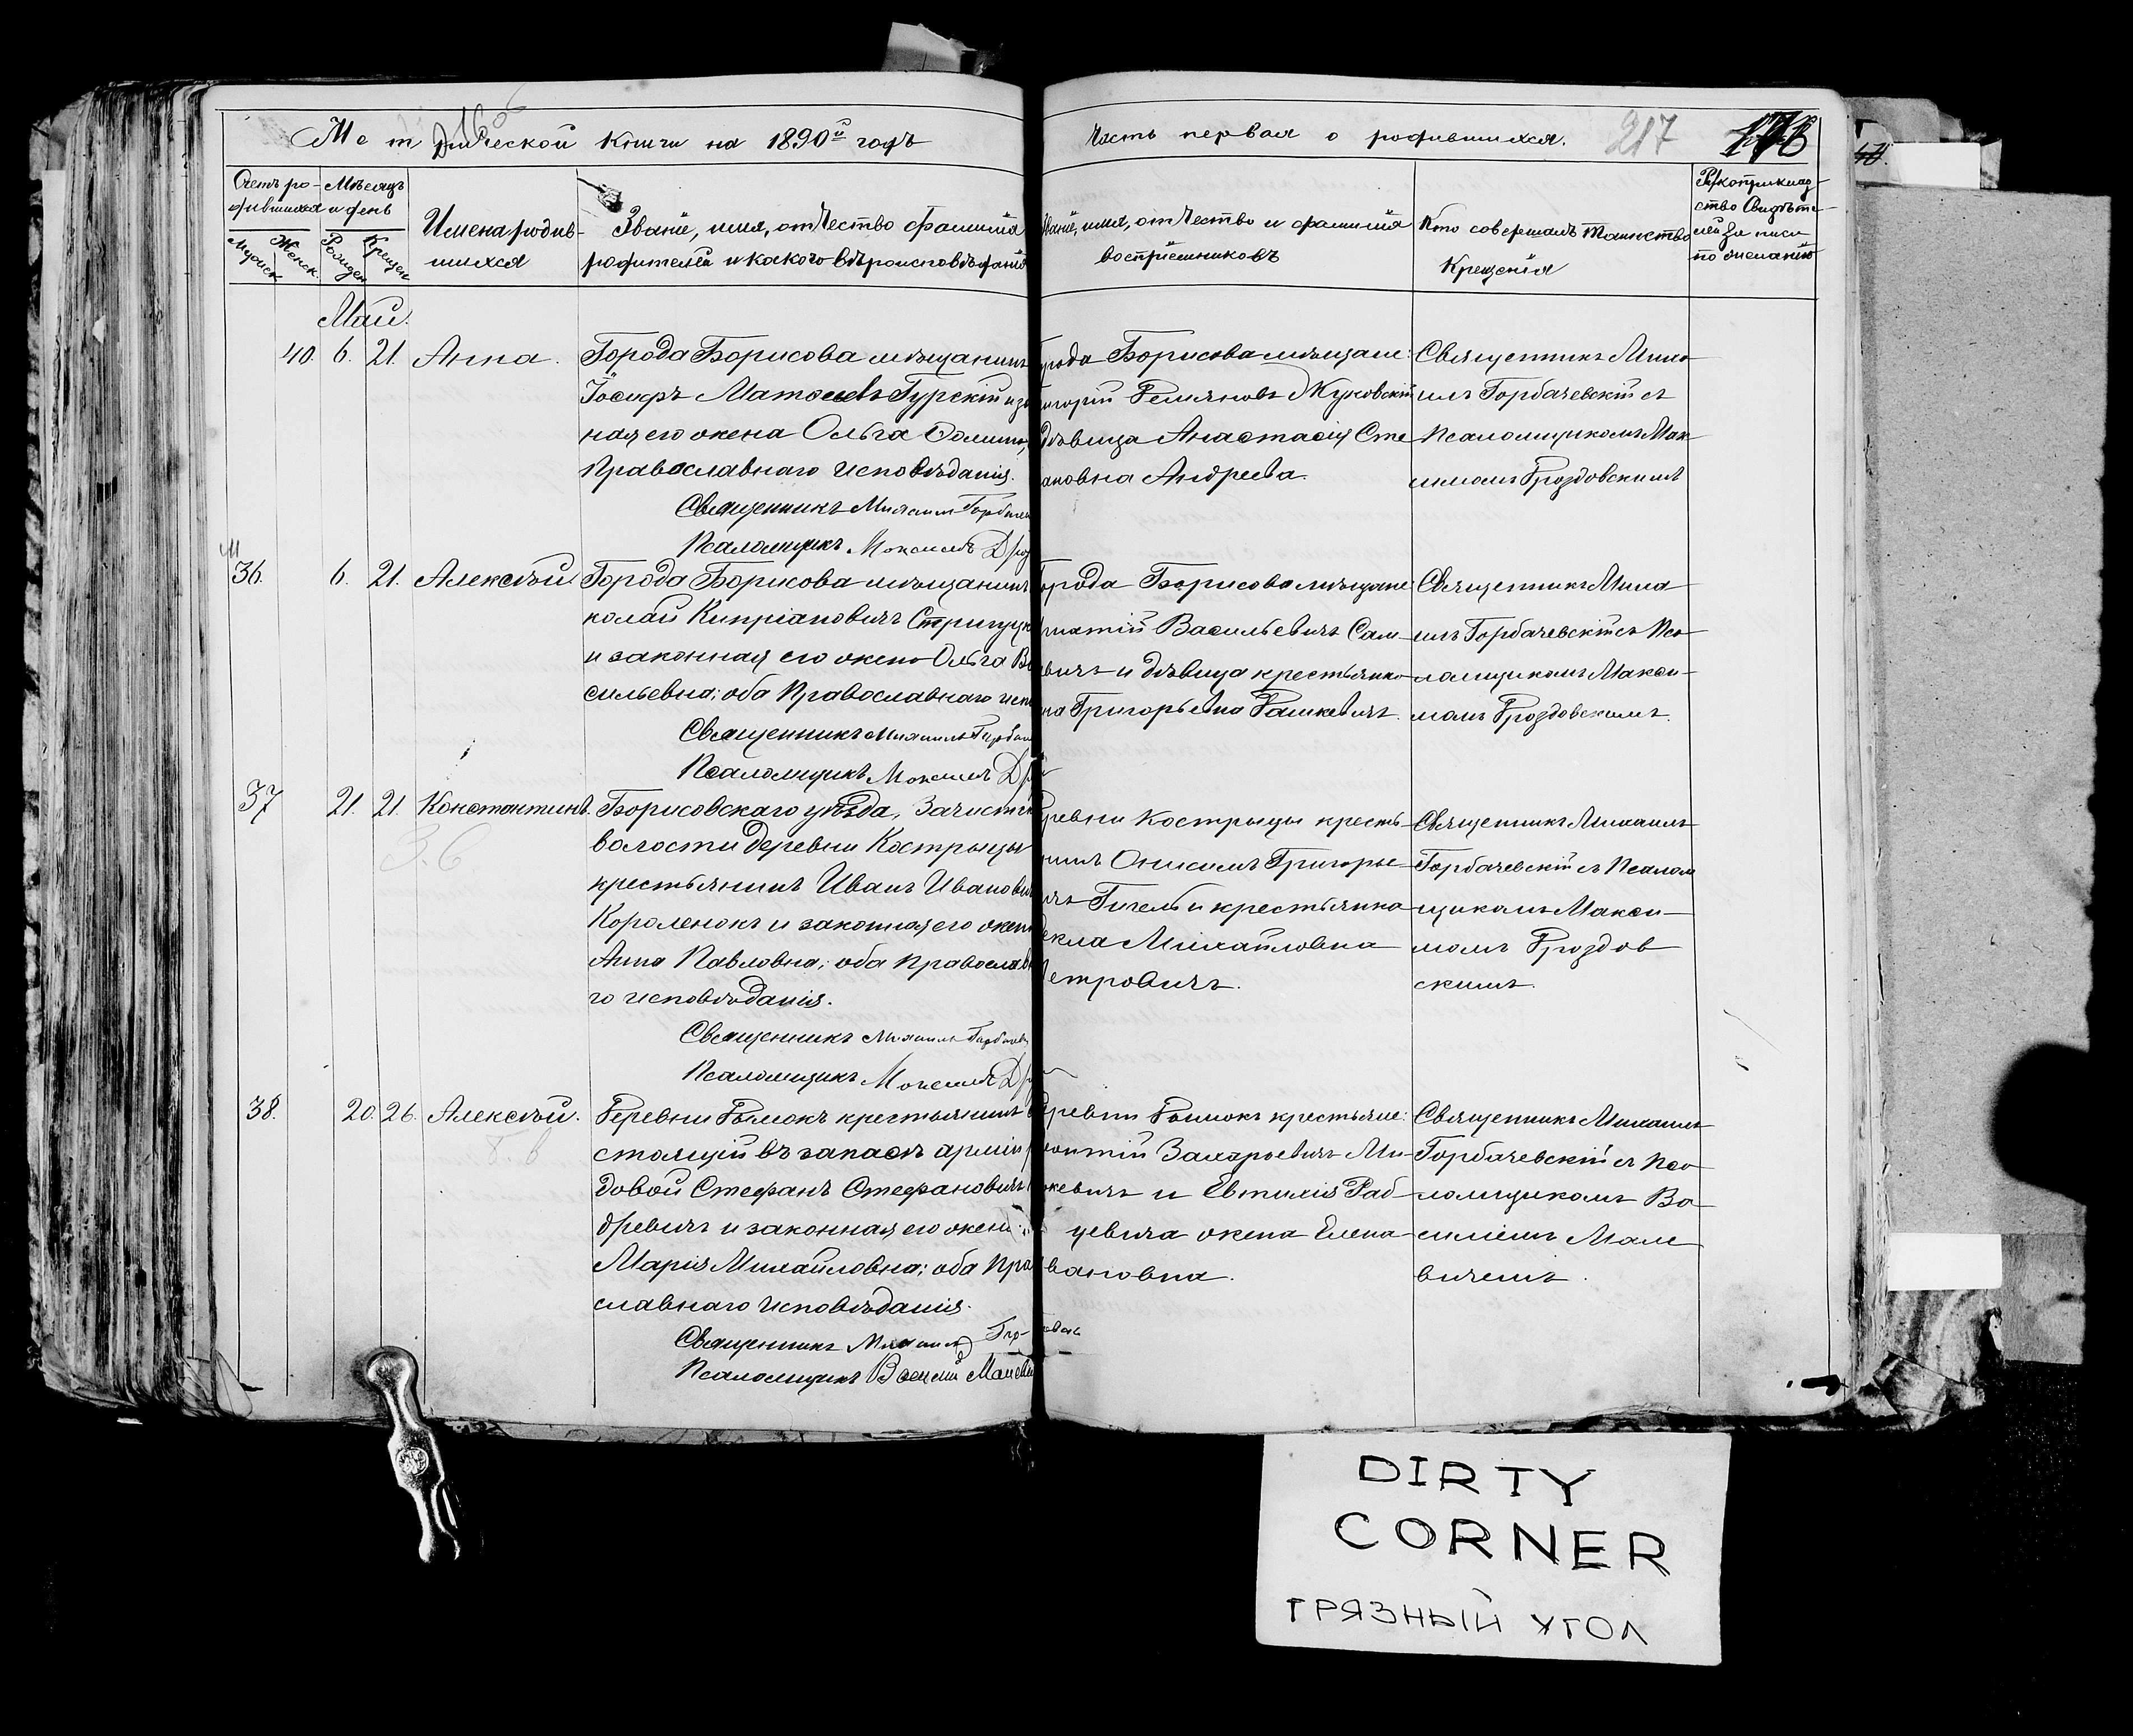 Метрической книги на 1890й годъ
Часть первая о родившихся. 217
Счетъ ро-
дившихся
Мѣсяцъ
и день
Мужск.
Женск.
Рожден
Крещен
Имена родив-
шихся
Званіе, имя, отчество фамилія
родителей и какого вѣроисповѣданія
званіе, имя, отчество и фамилія
воспріемниковъ
Кто совершалъ таинство
Крещенія
Рукоприклад-
ство свидѣте-
лей записи
по желанію
Май.
40. 6. 21. Анна.
Города Борисова мѣщанинъ
Іосифъ Матѳеевъ Гурскій и за
ная его жена Ольга
Православнаго исповѣданія.
Священникъ Михаилъ
Псаломщикъ Максимъ
Города Борисова мѣщане:
Григорій Демяновъ Жуковскій
дѣвица Анастасія Сте
ановна Андреева.
Священникъ Миха
илъ Горбачевскій съ
Псаломщикомъ Мак
симомъ Дроздовскимъ
36. 6. 21. Алексѣй
Города Борисова мѣщанинъ
колай Кипріановичъ
и законная его жена Ольга Ва
сильевна; оба Православнаго исп
Священникъ Михаилъ
Псаломщикъ Максимъ
Города Борисова мѣщане
Игнатій Васильевичъ Сам-
вичъ и дѣвица крестьянка
на Григорьевна Дашкевичъ.
Священникъ Миха
илъ Горбачевскій съ Пса
ломщикомъ Макси-
момъ Дроздовскимъ.
37 21. 21. Константинъ.
Борисовскаго уѣзда, Зачист
волости деревни Кострицы
крестьянинъ Иванъ Иванович
Короленокъ и законная его жена
Анна Павловна; оба православна
го исповѣданія.
Священникъ Михаилъ
Псаломщикъ Максимъ
Деревни Кострицы кресть-
нинъ Онисимъ Григорье-
ичъ Гигель и крестьянка
екла Михайловна
Петровичъ.
Священникъ Михаилъ
Горбачевскій съ Псалом
щикомъ Макси-
момъ Дроздов
скимъ.
38. 20. 26. Алексѣй.
Деревни Дымокъ крестьянинъ
стоящій въ запасѣ арміи
довой Стефанъ Стефановичъ
древичъ и законная его жена
Марія Михайловна; оба Пра
славнаго исповѣданія.
Священникъ Михаилъ
Псаломщикъ Василій
Деревни Дымокъ крестьяне:
Леонтій Захарьевичъ Ми-
кевичъ и Евтихія Раб-
цевича жена Елена
Ивановна.
Священникъ Михаилъ
Горбачевскій съ Пса
ломщикомъ Ва
силіемъ Мале
вичемъ.
DIRTY
CORNER
ГРЯЗНЫЙ УГОЛ